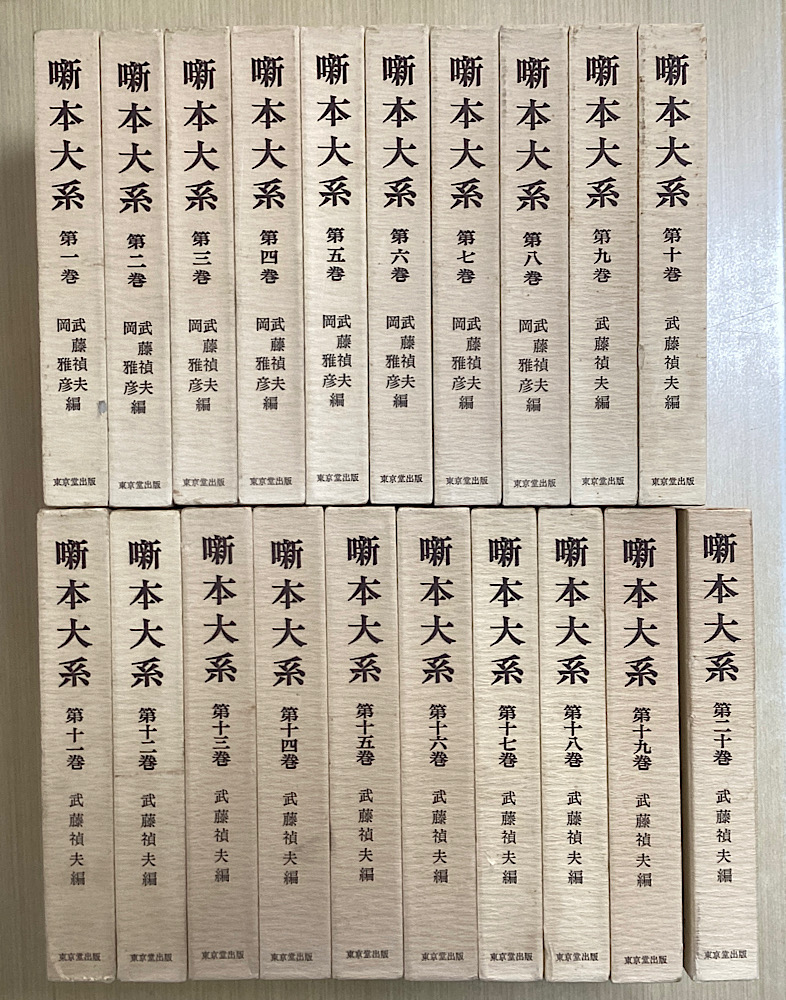 噺本大系 第一巻 武藤禎夫 岡雅彦 編 東京堂出版
噺本大系 第二巻 武藤禎夫 岡雅彦 編 東京堂出版
噺本大系 第三巻 武藤禎夫 岡雅彦 編 東京堂出版
噺本大系 第四巻 武藤禎夫 岡雅彦 編 東京堂出版
噺本大系 第五巻 武藤禎夫 岡雅彦 編 東京堂出版
噺本大系 第六巻 武藤禎夫 岡雅彦 編 東京堂出版
噺本大系 第七巻 武藤禎夫 岡雅彦 編 東京堂出版
噺本大系 第八巻 武藤禎夫 岡雅彦 編 東京堂出版
噺本大系 第九巻 武藤禎夫編 東京堂出版
噺本大系 第十巻 武藤禎夫編 東京堂出版
噺本大系 第十一巻 武藤禎夫編 東京堂出版
噺本大系 第十二巻 武藤禎夫編 東京堂出版
噺本大系 第十三巻 武藤禎夫編 東京堂出版
噺本大系 第十四巻 武藤禎夫編 東京堂出版
噺本大系 第十五巻 武藤禎夫編 東京堂出版
噺本大系 第十六巻 武藤禎夫編 東京堂出版
噺本大系 第十七巻 武藤禎夫編 東京堂出版
噺本大系 第十八巻 武藤禎夫編 東京堂出版
噺本大系 第十九巻 武藤禎夫編 東京堂出版
噺本大系 第二十巻 武藤禎夫編 東京堂出版